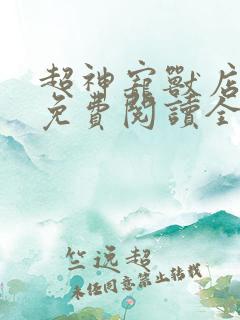 超神寵獸店
免費閱讀全
竺远超
未经同意禁止转载